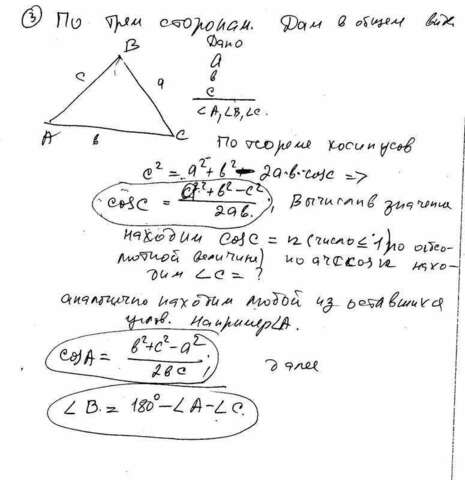 ③ По трем сторонам. Дам в общем виде
B
Дано
c
a
a
в
c
A
в
C
∠A, ∠B, ∠C.
По теореме косинусов
c² = a² + в² - 2a·в·cosc =>
cosC = (a² + в² - c²)/2aв. ; Вычислив значения
находим cosC = n (число ≤ 1) по абсо-
лютной величине) по arccosn нахо-
дим ∠C = ?
аналогично находим любой из оставшихся
углов. Например ∠A.
cosA = (в² + c² - a²)/2вc ; далее
∠B. = 180° - ∠A - ∠C.